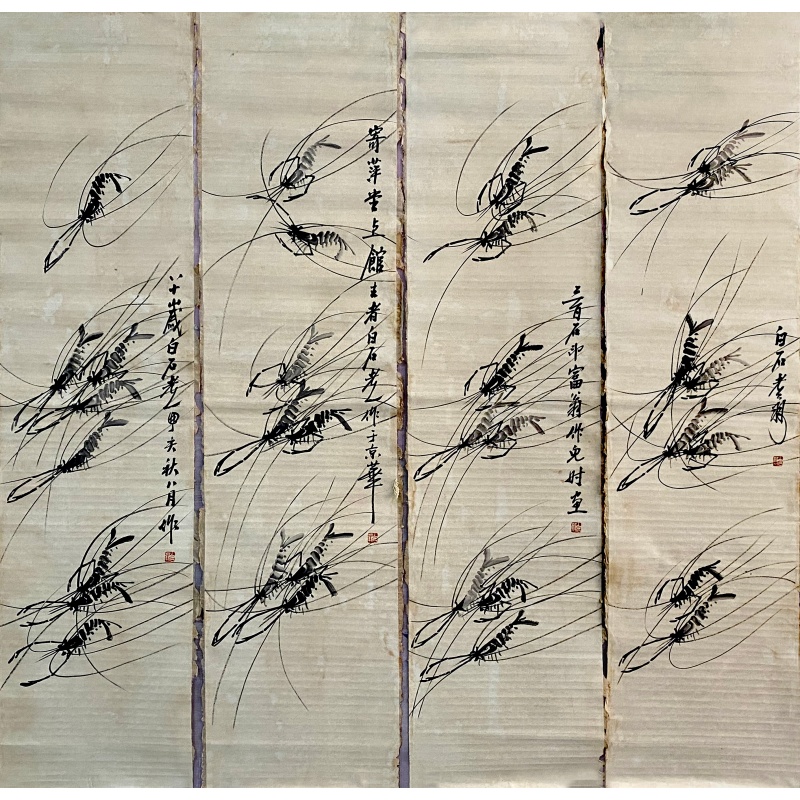 白石老翁
三百石印富翁作 时画
寄萍堂上館主者白石老人作于京華
八十歲白石老人甲 秋八月作